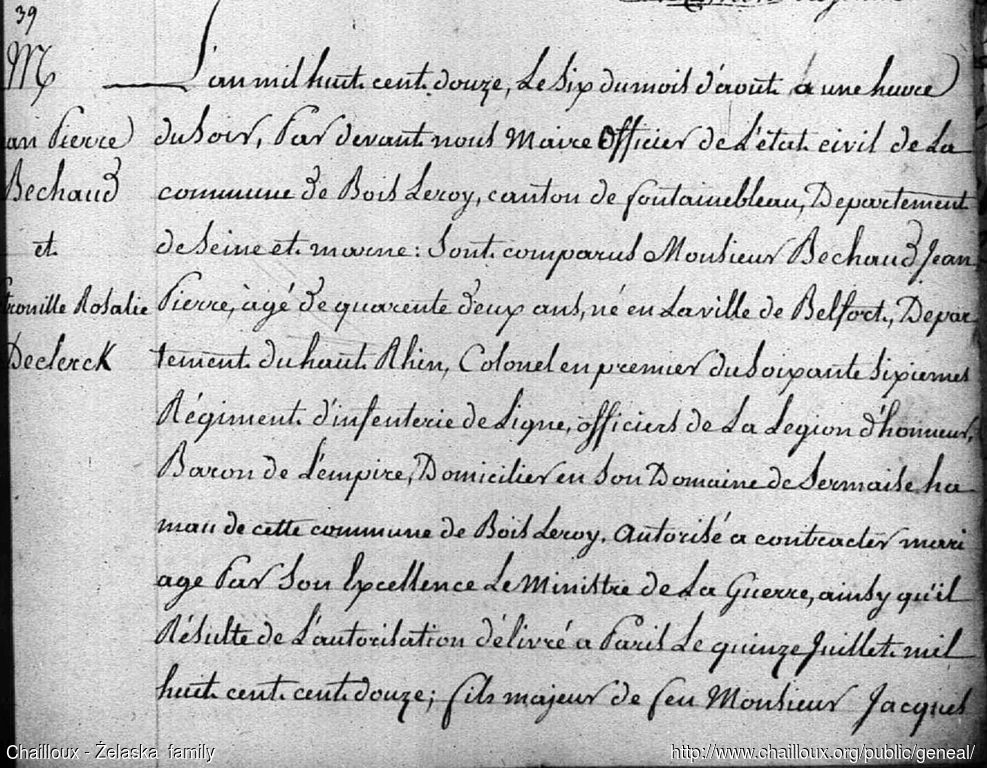 39
M
an Pierre
Bechaud
et
tronille Rosalie
Declerck
L'an mil huit cent douze, Le Six du mois d'août a une heure
du Soir, Par devant nous Maire Officier de L'état civil de La
commune de Bois Leroy, canton de fontainebleau, Departement
de Seine et marne : Sont comparus Monsieur Bechaud Jean
Pierre, àgé de quarente deux ans, né en La ville de Belfort, Depar
tement du haut Rhin, Colonel en premier du Soixante Sixiemes
Régiment d'infenterie de Ligne, officiers de La Legion d'honneur,
Baron de L'empire, Domicilier en Son Domaine de Sermaise ha
mau de cette commune de Bois Leroy. autorisé a contracter mari
age Par Son Excellence Le Ministre de La Guerre, ainsy qu'il
Résulte de L'autorisation délivré a Paris Le quinze Juillet mil
huit cent cent douze ; fils majeur de feu Monsieur Jacques
Chailloux - Želaska family
http://www.chailloux.org/public/geneal/